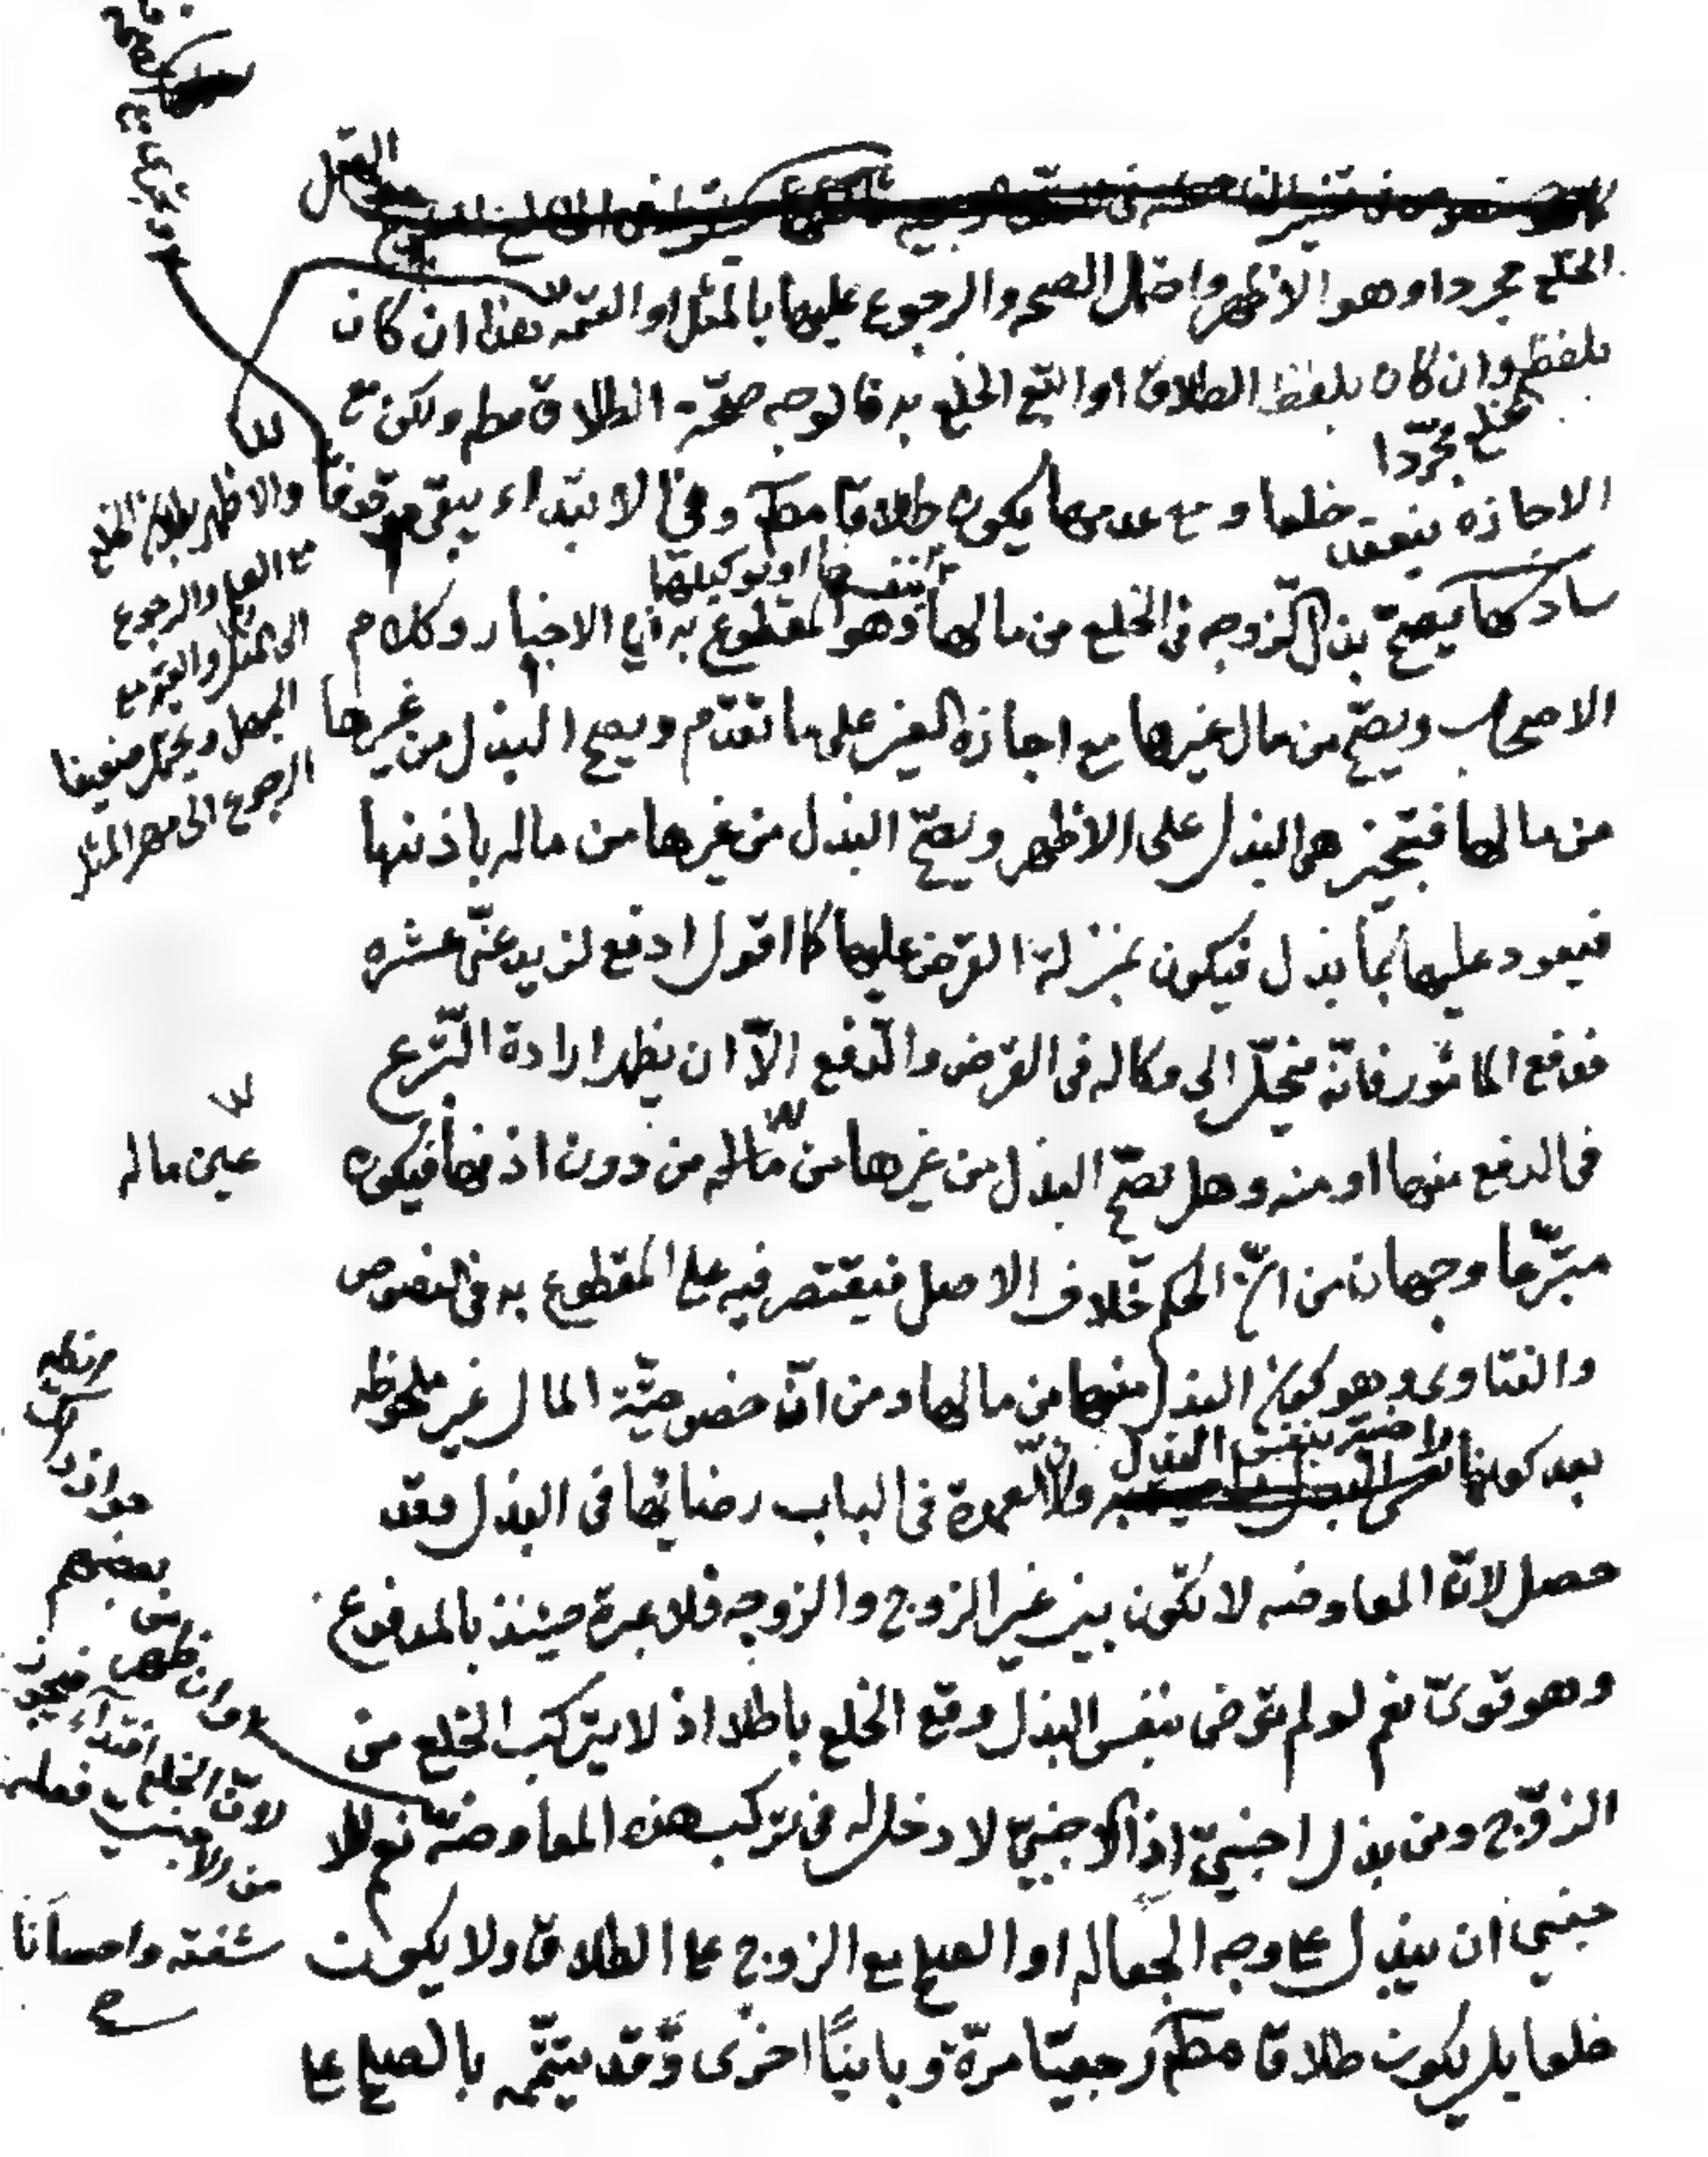 القول
الخلع مجردا وهو الاظهر واحتمل الصحه والرجوع عليها بالمثل او القيمه هذا ان كان
بلفظ خلع مجردا وان كان بلفظ الطلاق او اتبع الخلع به فالوجه صحّة الطلاق مطم ولكن مع
الاجازه ينعقد خلعا و مع عدمها يكون طلاقا مطم وفي الابتداء يبقى موقوفا
كما يصحّ بذل الزوجه فى الخلع من مالها بنفسها او بوكيلها وهو المقطوع به فى الاخبار وكلام
الاصحاب ويصحّ من مال غيرها مع اجازه الغير على ما تقدّم ويصح البذل من غيرها
من مالها فتجيز هى البذل على الاظهر ويصحّ البذل من غيرها من ماله باذنها
فيعود عليها بما بذل فيكون بمنزلة القرض عليها كما اقول ادفع لزيد عنّى عشره
فدفع المامور فانّه ينحلّ الى وكاله فى القرض والدّفع الاّ ان يظهر ارادة التّبرع
فى الدفع منها او منه وهل يصحّ البذل من غيرها من ماله من دون اذنها فيكون
متبرّعا وجهان من انّ الحكم خلاف الاصل فيقتصر فيه على المقطوع به فى النصوص
والفتاوى وهو كون البذل منها من مالها ومن انّ خصوصيّة المال غير ملحوظه
بعد كونها راضية بنفس البذل ولانّ العمدة فى الباب رضائها فى البذل وقد
حصل لانّ المعاوضه لا تكون بين غير الزوج والزوجه فلا عبرة حينئذ بالمدفوع
وهو قوىّ نعم لو لم ترض بنفس البذل وقع الخلع باطلا اذ لا يتركب الخلع من
الزّوج ومن بذل اجنبىّ اذ الاجنبىّ لا دخل له فى تركب هذه المعاوضه نعم للا
جنبي ان يبذل على وجه الجعاله او الصلح مع الزوج على الطلاق ولا يكون
خلعا بل يكون طلاقا مطم رجعيّا مرّة وباينًا اخرى وقد يتمّم بالصلح على
والاظهر بطلان الخلع
مع العلم والرجوع
الى المثل والقيمه مع
الجهل ويحتمل ضعيفا
الرجوع الى مهر المثل
عين ماله
وان ظهر من
بعضهم
جوازه
لانّ الخلع افتداء فيجوز
من الاجنبي
شفقته واحسانا